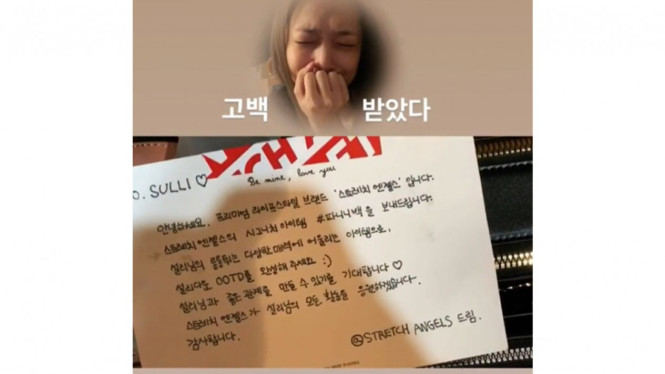 고백 받았다
O. SULLI ♡
Be mine, love you
안녕하세요. 프리미엄 라이프스타일 브랜드 '스트레치 엔젤스' 입니다.
스트레치 엔젤스의 시그니처 아이템 #파니니백 을 보내드립니다.
설리님의 통통튀는 다양한 매력에 어울리는 아이템으로,
설리다운 OOTD를 완성해 주세요 :)
설리님과 좋은 관계를 만들 수 있기를 기대합니다 ♡
스트레치 엔젤스가 설리님의 모든 활동을 응원하겠습니다.
감사합니다.
@STRETCH ANGELS 드림.